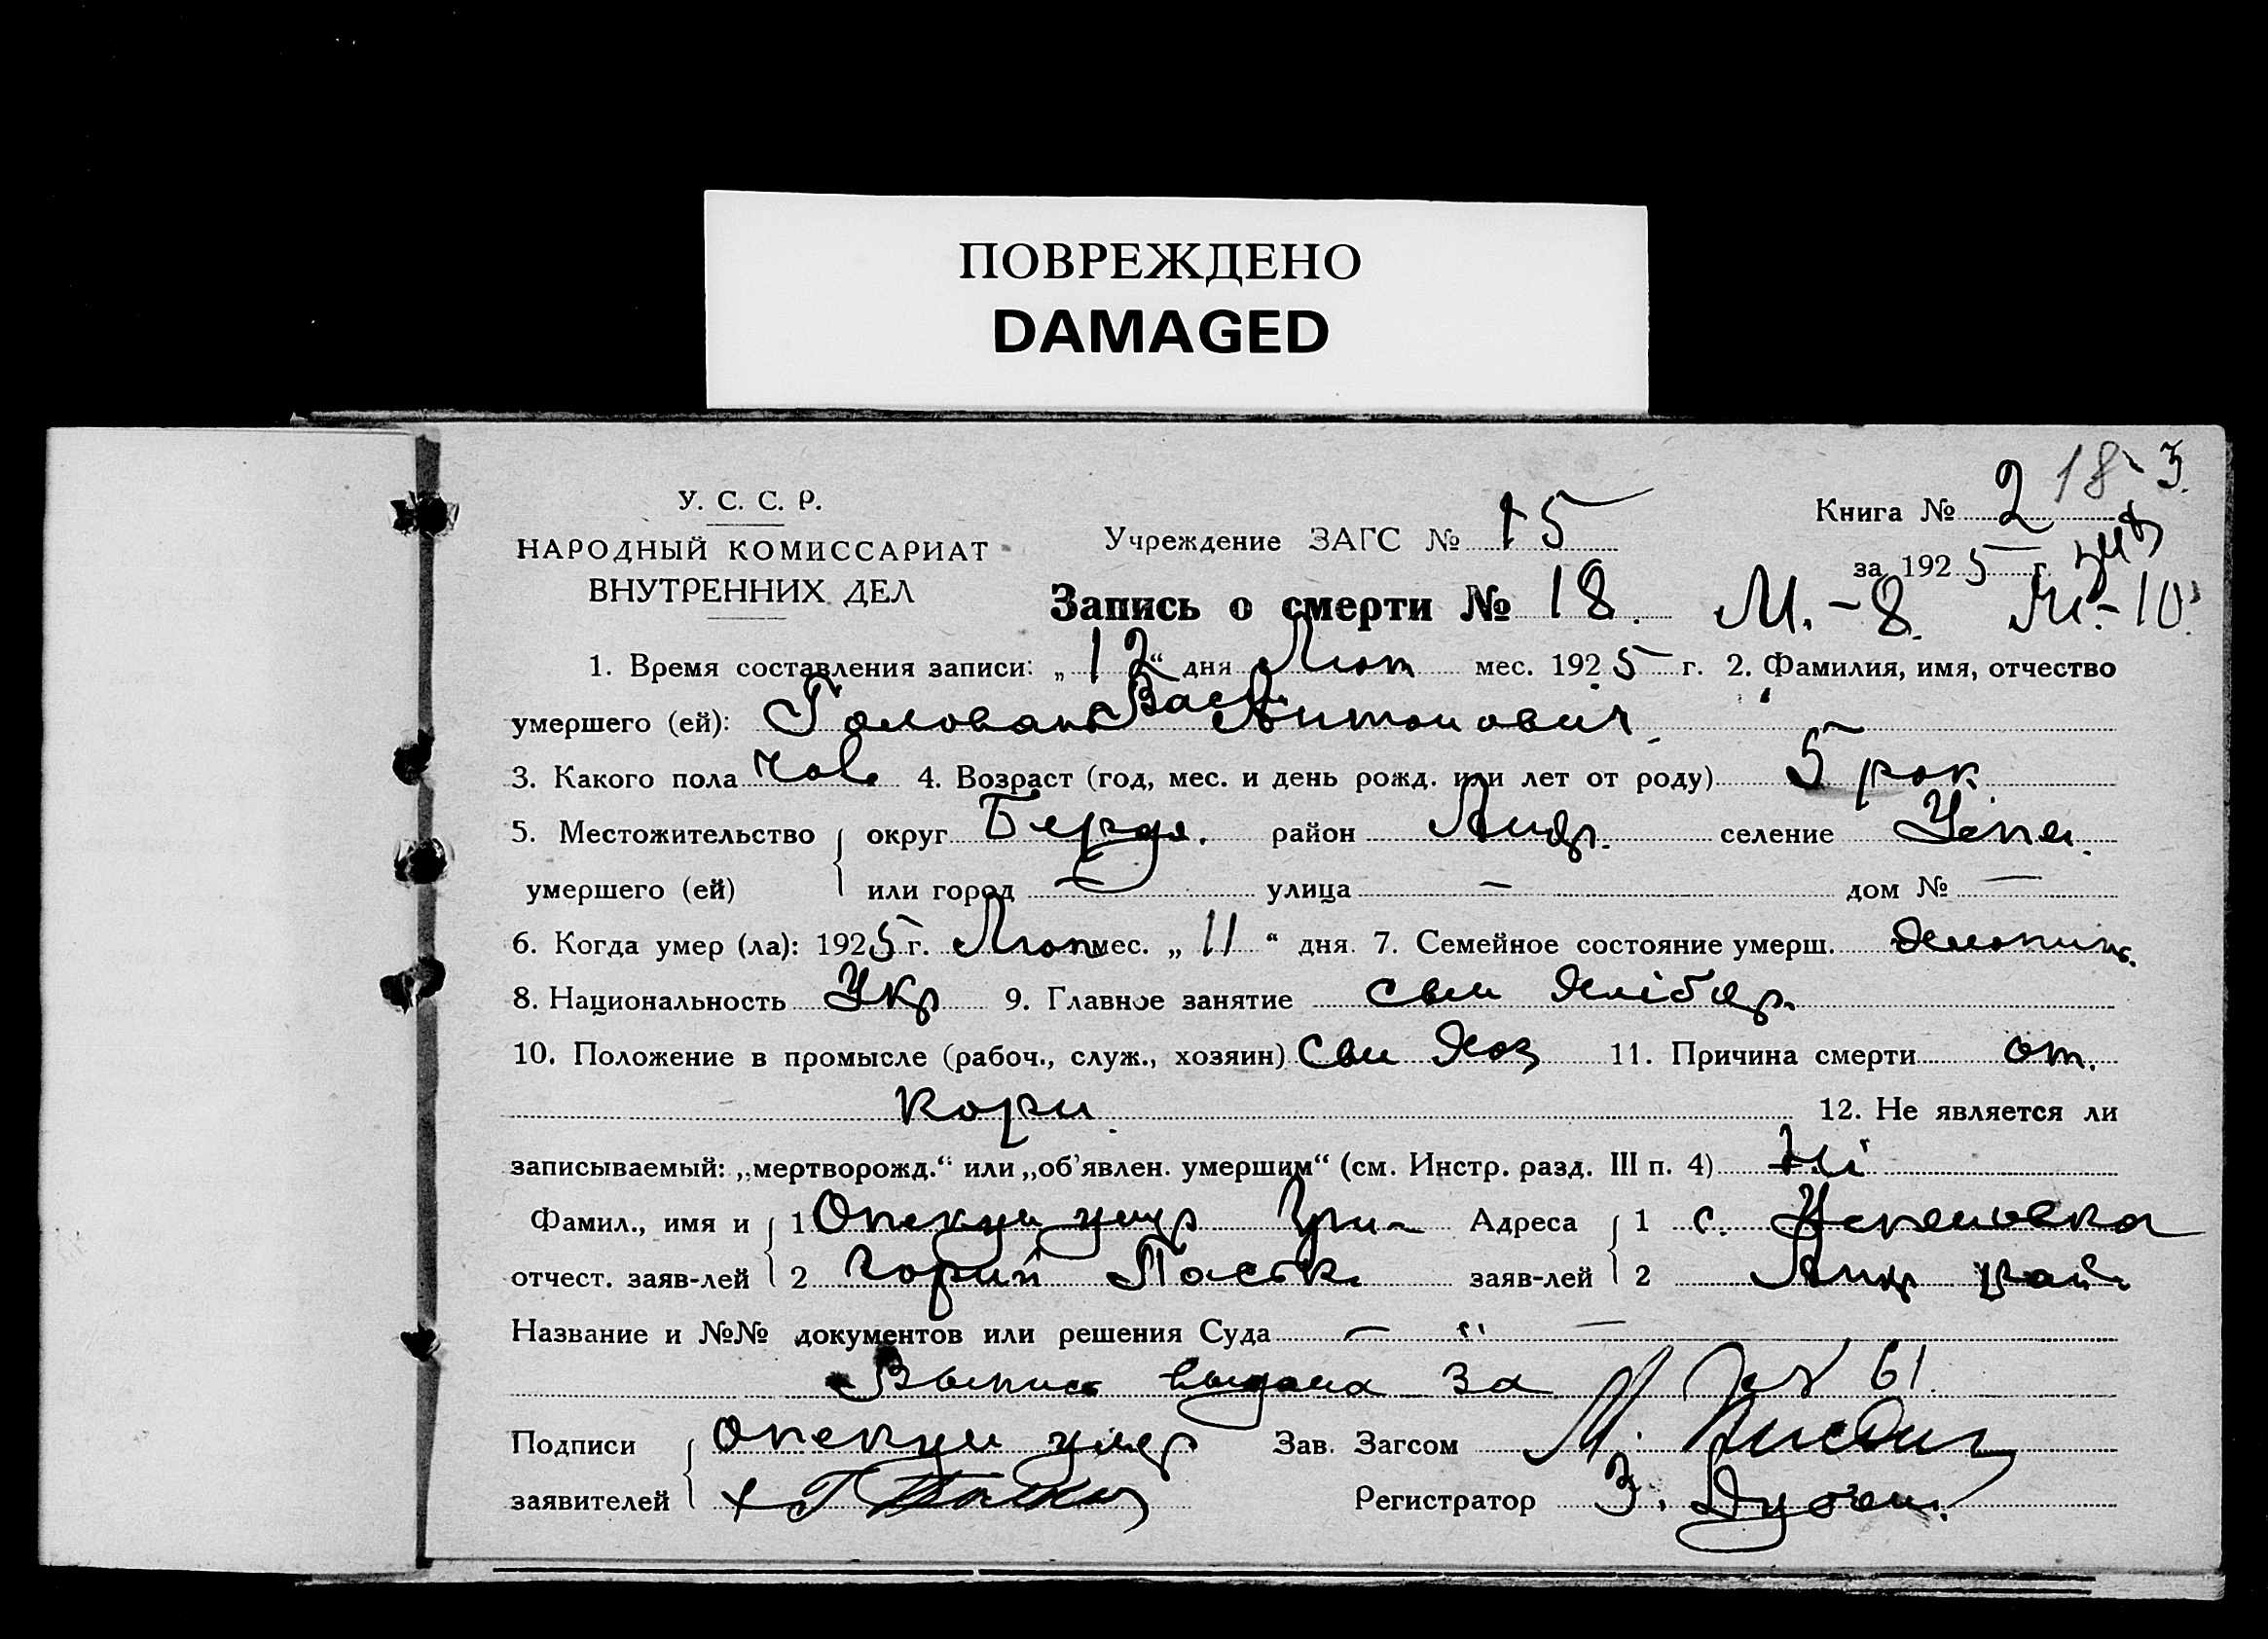 ПОВРЕЖДЕНО
DAMAGED
18 3
У. С. С. Р.
НАРОДНЫЙ КОМИССАРИАТ
ВНУТРЕННИХ ДЕЛ
Учреждение ЗАГС № 15
Книга № 2
за 1925 г.
Запись о смерти № 18. М.-8. М.-10
1. Время составления записи: „12“ дня Лют мес. 1925 г. 2. Фамилия, имя, отчество
умершего (ей): Головань Вас. Антонович
3. Какого пола чов. 4. Возраст (год, мес. и день рожд. или лет от роду) 5 рок.
5. Местожительство округ Бердя. район Андр. селение Успен.
умершего (ей) или город — улица — дом № —
6. Когда умер (ла): 1925 г. Лют мес. „11“ дня. 7. Семейное состояние умерш.
8. Национальность Укр 9. Главное занятие свен хлібор.
10. Положение в промысле (рабоч., служ., хозяин) Свен Хоз 11. Причина смерти от.
Кори.
12. Не является ли
записываемый: „мертворожд.“ или „об'явлен. умершим“ (см. Инстр. разд. III п. 4) Ні
Фамил., имя и 1 Опекун умер Гри- Адреса 1 с. Успеновка
отчест. заяв-лей 2 горий заяв-лей 2 Андр рай.
Название и №№ документов или решения Суда — " —
Выпись выдана за № 61.
Подписи Опекун умер Зав. Загсом М.
заявителей + Г Регистратор З.